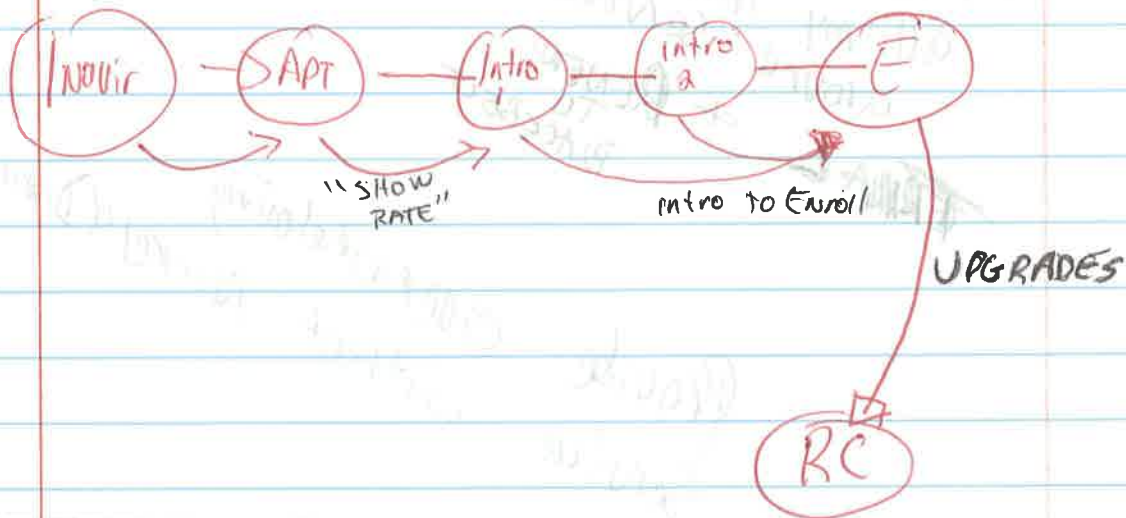 Inquir
APT
Intro
1
intro
2
E
"SHOW
RATE"
intro to Enroll
UPGRADES
RC